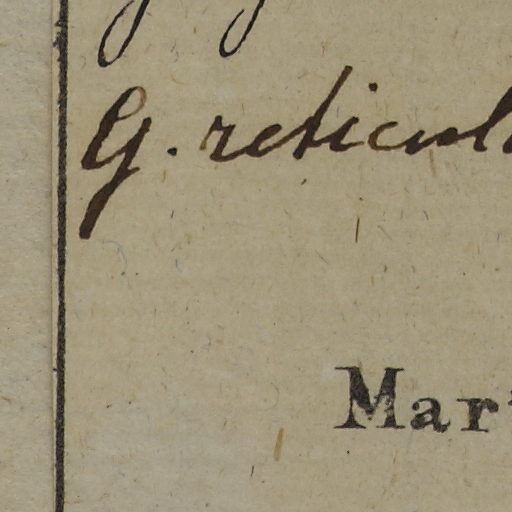 G. reticul
Mar